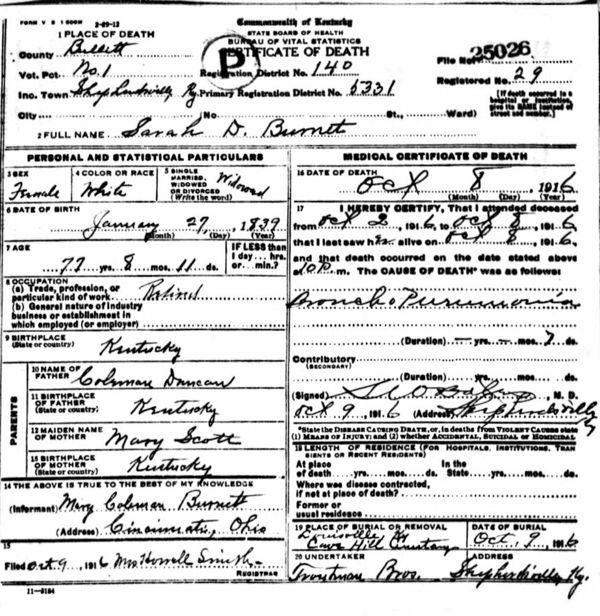 FORM V S 1 500M 2-09-12
Commonwealth of Kentucky
STATE BOARD OF HEALTH
BUREAU OF VITAL STATISTICS
CERTIFICATE OF DEATH
P
1 PLACE OF DEATH
County Bullitt
Vot. Pct. No. 1
Inc. Town Shepherdsville Ky
Registration District No. 140
Primary Registration District No. 5331
File No. 25026
Registered No. 29
[If death occurred in a hospital or institution, give its NAME instead of street and number.]
City (No. St., Ward)
2 FULL NAME Sarah D. Burnet
PERSONAL AND STATISTICAL PARTICULARS
3 SEX Female
4 COLOR OR RACE White
5 SINGLE MARRIED, WIDOWED OR DIVORCED (Write the word) Widowed
6 DATE OF BIRTH January 27, 1839
(Month) (Day) (Year)
7 AGE 77 yrs. 8 mos. 11 ds.
IF LESS than 1 day... hrs. or min.?
8 OCCUPATION
(a) Trade, profession, or particular kind of work Retired
(b) General nature of industry business or establishment in which employed (or employer)
9 BIRTHPLACE (State or country) Kentucky
PARENTS
10 NAME OF FATHER Coleman Duncan
11 BIRTHPLACE OF FATHER (State or country) Kentucky
12 MAIDEN NAME OF MOTHER Mary Scott
13 BIRTHPLACE OF MOTHER (State or country) Kentucky
14 THE ABOVE IS TRUE TO THE BEST OF MY KNOWLEDGE
(Informant) Mary Coleman Burnett
(Address) Cincinnati, Ohio
15
Filed Oct 9, 1916 Mrs Howell Smith
REGISTRAR
11-3184
MEDICAL CERTIFICATE OF DEATH
16 DATE OF DEATH Oct 8, 1916
(Month) (Day) (Year)
17 I HEREBY CERTIFY, That I attended deceased
from Oct 2, 1916, to Oct 8, 1916,
that I last saw her alive on Oct 8, 1916,
and that death occurred on the date stated above
at 10 P. m. The CAUSE OF DEATH* was as follows:
Broncho Pneumonia
(Duration) — yrs. — mos. 7 ds.
Contributory (SECONDARY)
(Duration) yrs. mos. ds.
(Signed) M. D.
Oct 9, 1916 (Address) Shepherdsville
*State the DISEASE CAUSING DEATH, or, in deaths from VIOLENT CAUSES state (1) MEANS OF INJURY; and (2) whether ACCIDENTAL, SUICIDAL OR HOMICIDAL
18 LENGTH OF RESIDENCE (FOR HOSPITALS, INSTITUTIONS, TRANSIENTS OR RECENT RESIDENTS)
At place of death yrs. mos. ds. In the State yrs. mos. ds.
Where was disease contracted, if not at place of death?
Former or usual residence
19 PLACE OF BURIAL OR REMOVAL Louisville Ky Cave Hill Cemetery
DATE OF BURIAL Oct, 9, 1916
20 UNDERTAKER Troutman Bros.
ADDRESS Shepherdsville, Ky.